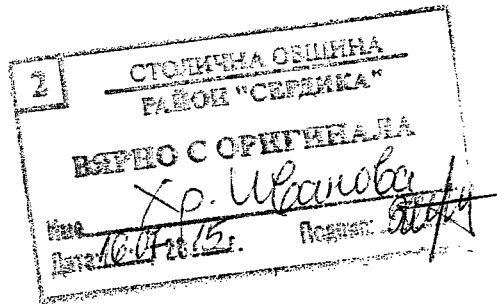 2
СТОЛИЧНА ОБЩИНА
РАЙОН "СЕРДИКА"
ВЯРНО С ОРИГИНАЛА
Име Хр. Иванова
Дата: 16.07 2015г. Подпис: